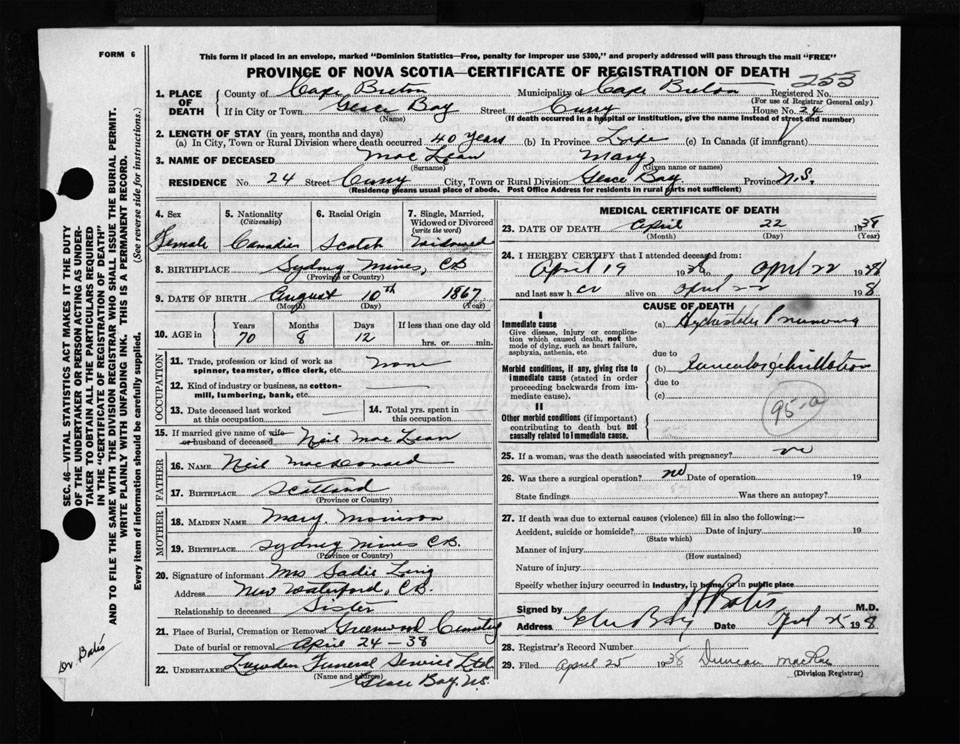 FORM 6
This form if placed in an envelope, marked "Dominion Statistics—Free, penalty for improper use $300," and properly addressed will pass through the mail "FREE"
PROVINCE OF NOVA SCOTIA—CERTIFICATE OF REGISTRATION OF DEATH
253
1. PLACE OF DEATH
County of Cape Breton Municipality of Cape Breton Registered No.
(For use of Registrar General only)
If in City or Town Glace Bay Street House No. 24
(Name) (If death occurred in a hospital or institution, give the name instead of street and number)
2. LENGTH OF STAY (in years, months and days)
(a) In City, Town or Rural Division where death occurred 40 years (b) In Province Life (c) In Canada (if immigrant)
3. NAME OF DECEASED MacLean Mary
(Surname) (Given name or names)
RESIDENCE No. 24 Street City, Town or Rural Division Glace Bay. Province N.S.
(Residence means usual place of abode. Post Office Address for residents in rural parts not sufficient)
4. Sex
Female
5. Nationality
(Citizenship)
6. Racial Origin
Scotch
7. Single, Married, Widowed or Divorced
(write the word)
Widowed
8. BIRTHPLACE Sydney Mines, C.B.
(Province or Country)
9. DATE OF BIRTH August 10th 1867
(Month) (Day) (Year)
10. AGE in
Years Months Days If less than one day old
70 8 12 hrs. or min.
OCCUPATION
11. Trade, profession or kind of work as spinner, teamster, office clerk, etc. None
12. Kind of industry or business, as cotton-mill, lumbering, bank, etc.
13. Date deceased last worked at this occupation
14. Total yrs. spent in this occupation
15. If married give name of wife or husband of deceased Neil MacLean
FATHER
16. NAME Neil MacDonald
17. BIRTHPLACE Scotland
(Province or Country)
MOTHER
18. MAIDEN NAME Mary. Morrison
19. BIRTHPLACE Sydney Mines C.B.
(Province or Country)
20. Signature of informant Mrs Sadie
Address New Waterford, C.B.
Relationship to deceased Sister
21. Place of Burial, Cremation or Removal Greenwood Cemetery
Date of burial or removal April 24 - 38
22. UNDERTAKER Funeral Service Ltd
(Name and address) Glace Bay. N.S.
MEDICAL CERTIFICATE OF DEATH
23. DATE OF DEATH April 22 1938
(Month) (Day) (Year)
24. I HEREBY CERTIFY that I attended deceased from:
April 19 1938 to April 22 1938
and last saw h er alive on April 22 1938
CAUSE OF DEATH
I
Immediate cause
Give disease, injury or complication which caused death, not the mode of dying, such as heart failure, asphyxia, asthenia, etc
(a)
due to
Morbid conditions, if any, giving rise to immediate cause (stated in order proceeding backwards from immediate cause).
(b)
due to
(c)
II
Other morbid conditions (if important) contributing to death but not causally related to immediate cause.
95-a
25. If a woman, was the death associated with pregnancy? no
26. Was there a surgical operation? no Date of operation 19
State findings Was there an autopsy?
27. If death was due to external causes (violence) fill in also the following:—
Accident, suicide or homicide? Date of injury 19
(State which)
Manner of injury
(How sustained)
Nature of injury
Specify whether injury occurred in industry, in home, or in public place
Signed by Batis M.D.
Address Glace Bay Date April 25 1938
28. Registrar's Record Number
29. Filed April 25 1938 Duncan MacRae
(Division Registrar)
SEC. 46—VITAL STATISTICS ACT MAKES IT THE DUTY OF THE UNDERTAKER OR PERSON ACTING AS UNDERTAKER TO OBTAIN ALL THE PARTICULARS REQUIRED IN THE "CERTIFICATE OF REGISTRATION OF DEATH" AND TO FILE THE SAME WITH THE DIVISION REGISTRAR WHO SHALL ISSUE THE BURIAL PERMIT.
WRITE PLAINLY WITH UNFADING INK. THIS IS A PERMANENT RECORD.
Every item of information should be carefully supplied. (See reverse side for instructions.)
Dr. Batis